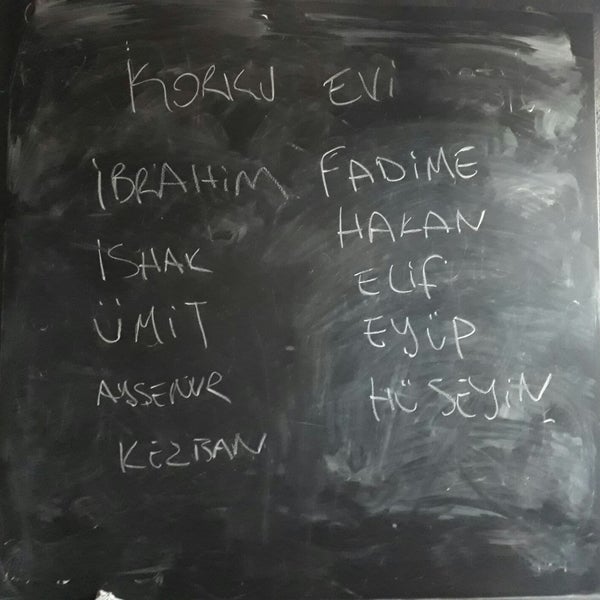 KORKU EVİ
İBRAHİM FADİME
HAKAN
İSHAK
ELİF
ÜMİT
EYÜP
AYŞENUR
HÜSEYİN
KEZBAN